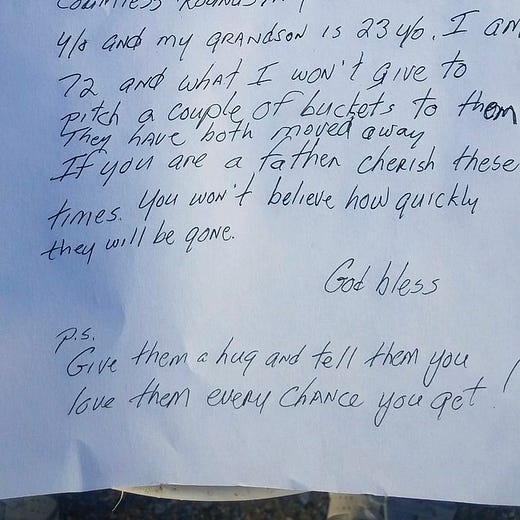 countless rounds my
y/o and my grandson is 23 y/o. I am
72 and what I won't give to
pitch a couple of buckets to them
They have both moved away
If you are a father cherish these
times. You won't believe how quickly
they will be gone.
God bless
p.s.
Give them a hug and tell them you
love them every chance you get!